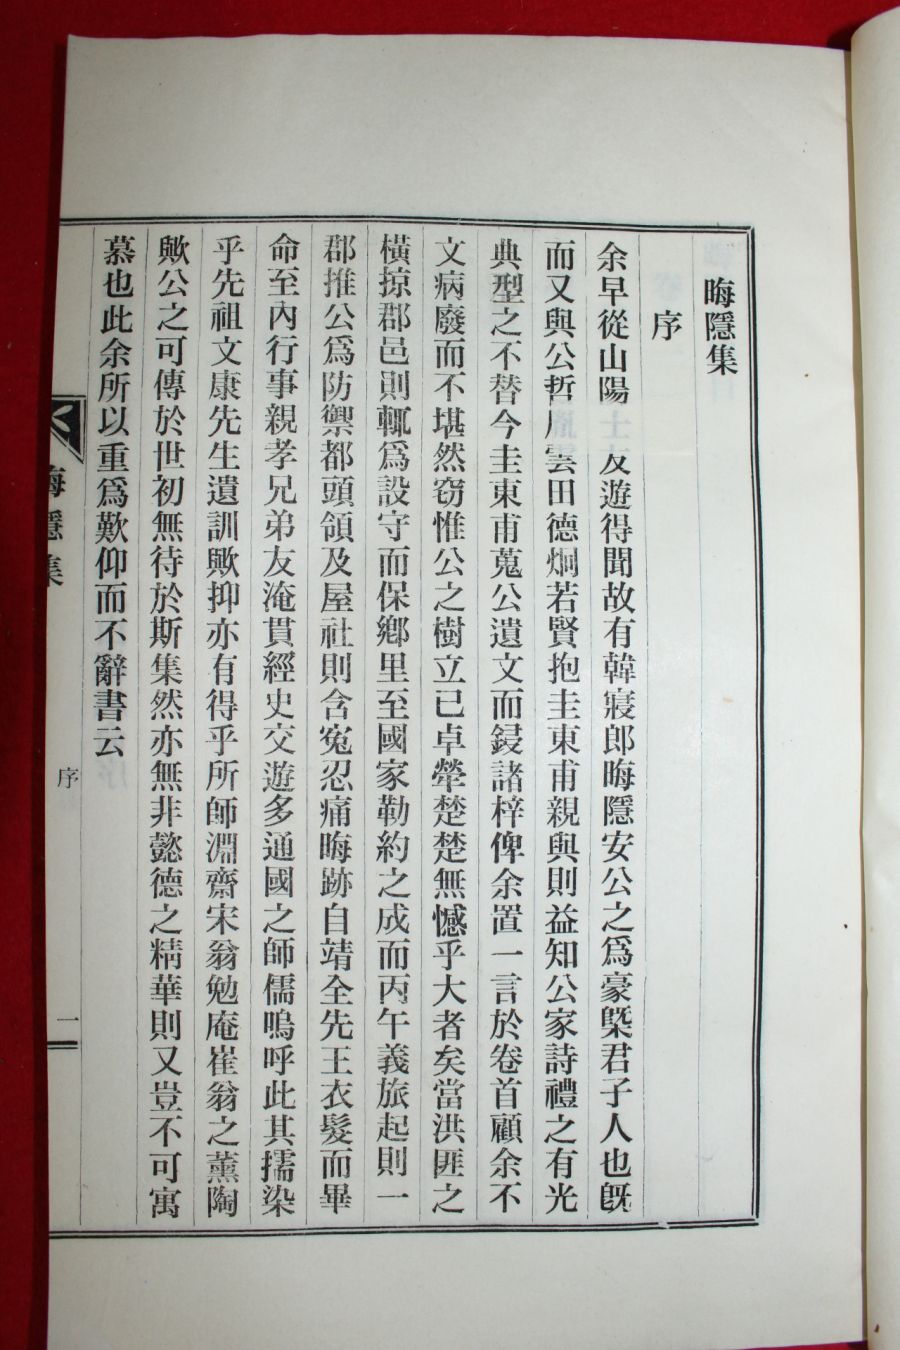 晦隱集
序
余早從山陽士友遊得聞故有韓寢郎晦隱安公之爲豪槩君子人也旣
而又與公哲胤雲田德炯若賢抱圭東甫親與則益知公家詩禮之有光
典型之不替今圭東甫蒐公遺文而鋟諸梓俾余置一言於卷首顧余不
文病廢而不堪然窃惟公之樹立已卓犖楚楚無憾乎大者矣當洪匪之
橫掠郡邑則輒爲設守而保鄕里至國家勒約之成而丙午義旅起則一
郡推公爲防禦都頭領及屋社則含寃忍痛晦跡自靖全先王衣髮而畢
命至內行事親孝兄弟友淹貫經史交遊多通國之師儒嗚呼此其擩染
乎先祖文康先生遺訓歟抑亦有得乎所師淵齋宋翁勉庵崔翁之薰陶
歟公之可傳於世初無待於斯集然亦無非懿德之精華則又豈不可寓
慕也此余所以重爲歎仰而不辭書云
晦隱集
序
一